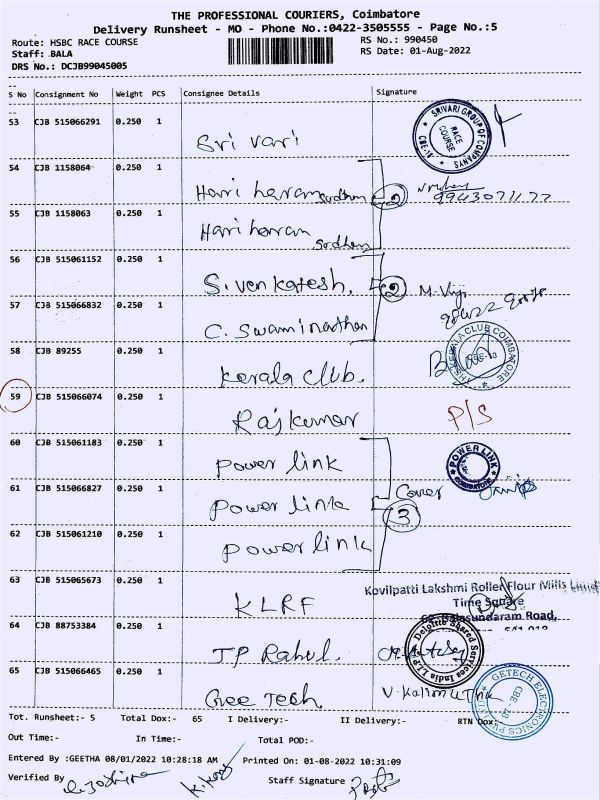 THE PROFESSIONAL COURIERS, Coimbatore
Delivery Runsheet - MO - Phone No.:0422-3505555 - Page No.:5
Route: HSBC RACE COURSE
RS No.: 990450
Staff: BALA
RS Date: 01-Aug-2022
DRS No.: DCJB99045005
S No Consignment No Weight PCS Consignee Details Signature
53 CJB 515066291 0.250 1 Sri vari
SRIVARI GROUP OF COMPANYS RACE COURSE CBE-18
54 CJB 1158064 0.250 1 Hari haran Sudhan 2
9943071177
55 CJB 1158063 0.250 1 Hari haran Sudhan
56 CJB 515061152 0.250 1 S. venkatesh. 2 M. Viji
57 CJB 515066832 0.250 1 C. Swaminathan
58 CJB 89255 0.250 1 Kerala club.
KERALA CLUB COIMBATORE
59 CJB 515066074 0.250 1 Rajkumar P/S
60 CJB 515061183 0.250 1 power link
POWER LINK COIMBATORE
61 CJB 515066827 0.250 1 power link Cover
3
62 CJB 515061210 0.250 1 power link
63 CJB 515065673 0.250 1 KLRF
Kovilpatti Lakshmi Roller Flour Mills Limited
Time Square
Balasundaram Road,
64 CJB 88753384 0.250 1 JP Rahul.
Deloitte Shared Services India LLP
65 CJB 515066465 0.250 1 Gee Tech V. Kalimutha
GETECH ELECTRONICS PVT LTD CBE-18
Tot. Runsheet:- 5 Total Dox:- 65 I Delivery:- II Delivery:- RTN Dox:-
Out Time:- In Time:- Total POD:-
Entered By :GEETHA 08/01/2022 10:28:18 AM Printed On: 01-08-2022 10:31:09
Verified By Staff Signature